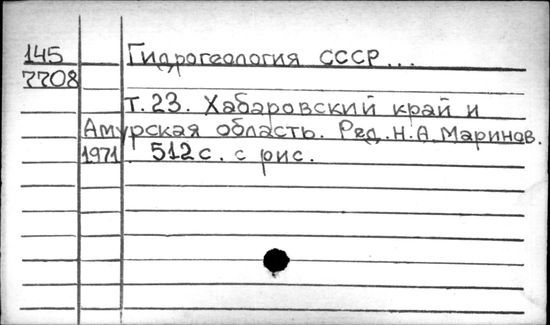 145 Гидрогеология СССР...
7708
Т.23. Хабаровский край и
Амурская область. Ред. Н.А. Маринов.
1971 512 с. с рис.